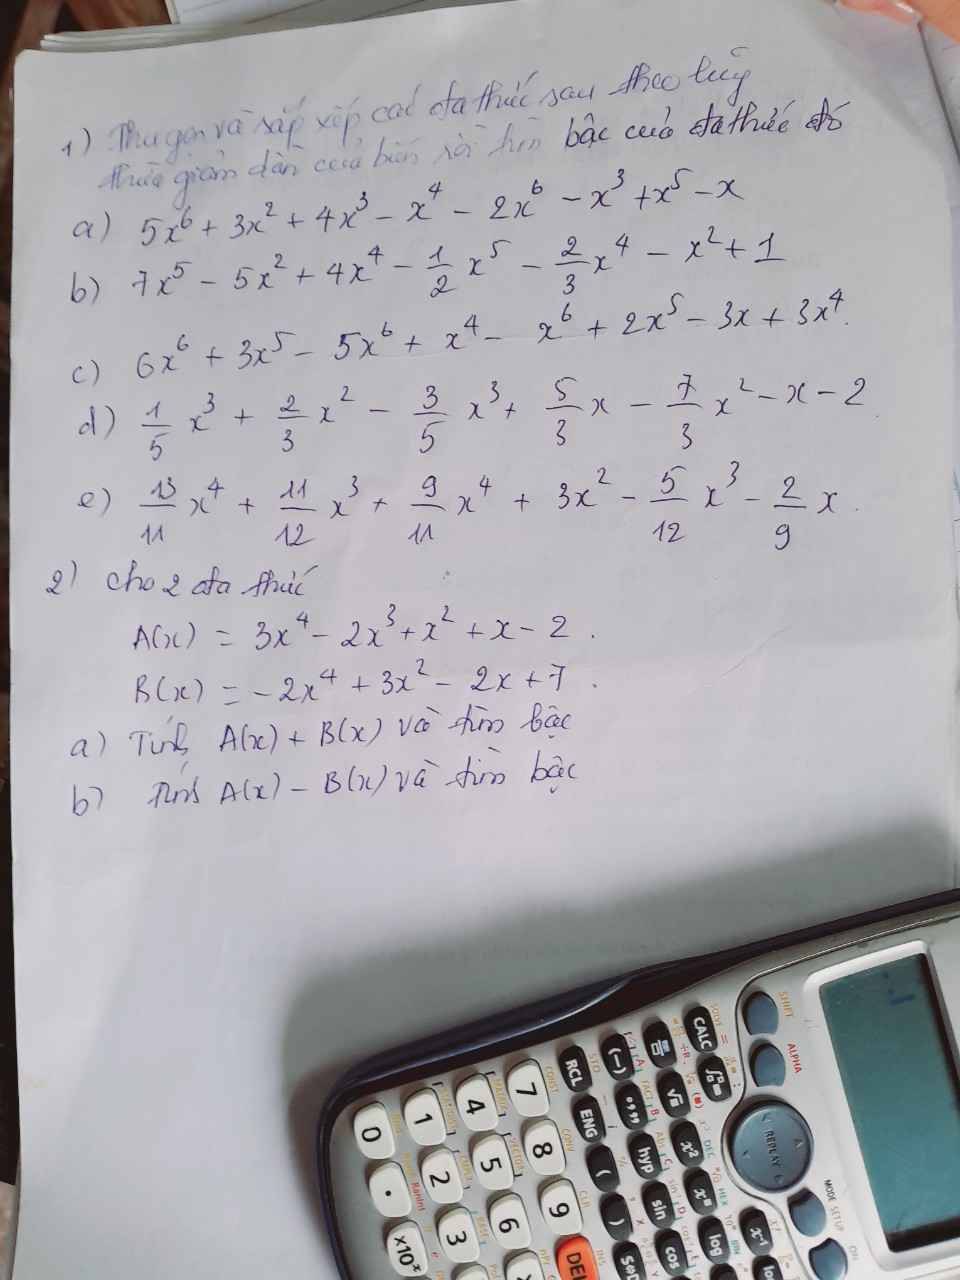 1) Thu gọn và sắp xếp các đa thức sau theo lũy
thừa giảm dần của biến rồi tìm bậc của đa thức đó
a) 5x⁶ + 3x² + 4x³ - x⁴ - 2x⁶ - x³ + x⁵ - x
b) 7x⁵ - 5x² + 4x⁴ - 1/2 x⁵ - 2/3 x⁴ - x² + 1
c) 6x⁶ + 3x⁵ - 5x⁶ + x⁴ - x⁶ + 2x⁵ - 3x + 3x⁴.
d) 1/5 x³ + 2/3 x² - 3/5 x³ + 5/3 x - 7/3 x² - x - 2.
e) 13/11 x⁴ + 11/12 x³ + 9/11 x⁴ + 3x² - 5/12 x³ - 2/9 x.
2) Cho 2 đa thức
A(x) = 3x⁴ - 2x³ + x² + x - 2.
B(x) = -2x⁴ + 3x² - 2x + 7.
a) Tính A(x) + B(x) và tìm bậc
b) Tính A(x) - B(x) và tìm bậc
SHIFT
ALPHA
REPLAY
MODE SETUP
ON
SOLVE =
CALC
x⁻¹
log
x²
hyp
sin
cos
(-)
STO
RCL
ENG
(
)
S⇔D
CONST
CONV
CLR
INS
7
8
9
DEL
4
5
6
1
2
3
0
.
×10ˣ
RanInt